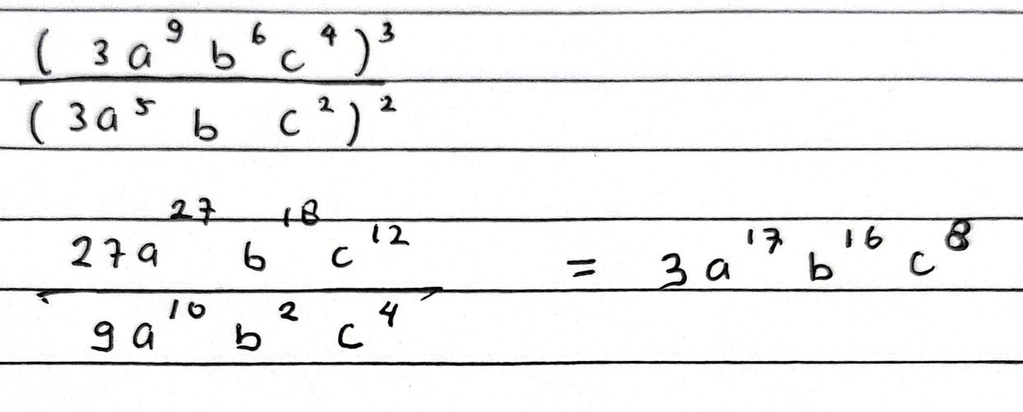 (3a⁹b⁶c⁴)³
(3a⁵ b c²)²
27a²⁷b¹⁸c¹²
9a¹⁰b²c⁴
= 3a¹⁷b¹⁶c⁸